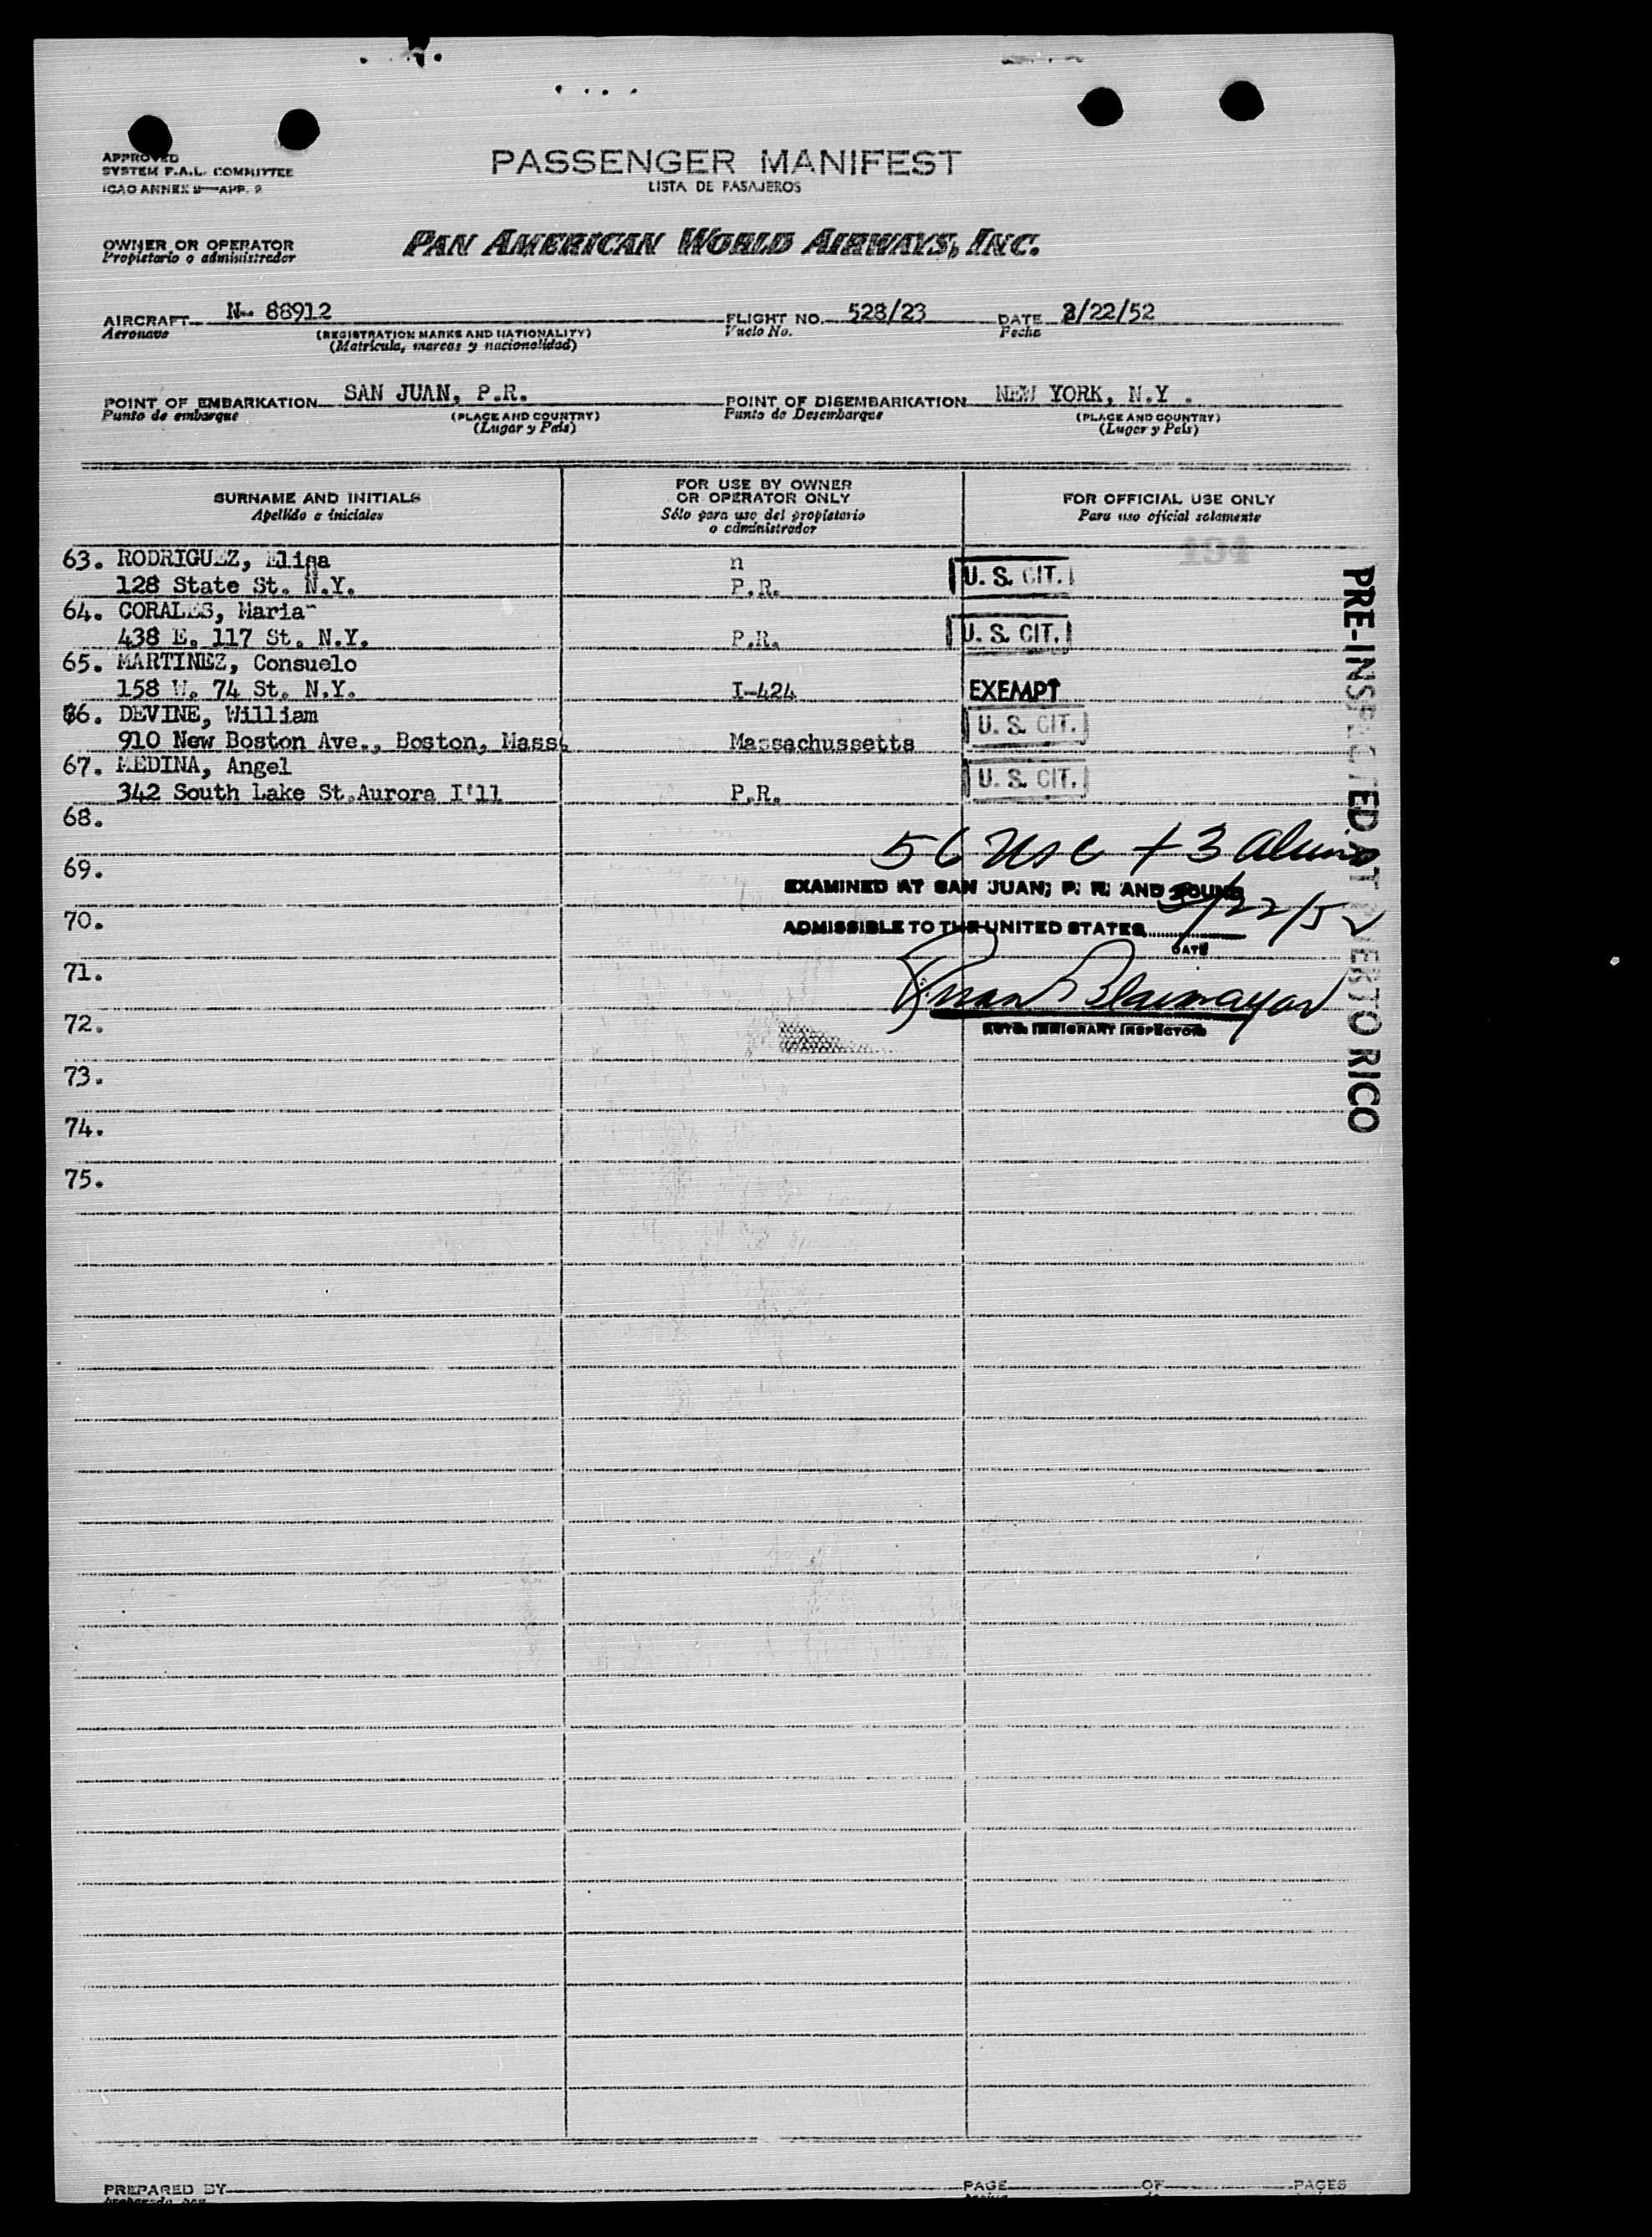 APPROVED
SYSTEM F.A.L. COMMITTEE
ICAO ANNEX 9—APP. 2
PASSENGER MANIFEST
LISTA DE PASAJEROS
OWNER OR OPERATOR
Propietario o administrador
PAN AMERICAN WORLD AIRWAYS, INC.
AIRCRAFT N- 88912 FLIGHT NO. 528/23 DATE 3/22/52
Aeronave (REGISTRATION MARKS AND NATIONALITY) Vuelo No. Fecha
(Matrícula, marcas y nacionalidad)
POINT OF EMBARKATION SAN JUAN, P.R. POINT OF DISEMBARKATION NEW YORK, N.Y .
Punto de embarque (PLACE AND COUNTRY) Punto de Desembarque (PLACE AND COUNTRY)
(Lugar y País) (Lugar y País)
SURNAME AND INITIALS
Apellido e iniciales
FOR USE BY OWNER
OR OPERATOR ONLY
Sólo para uso del propietario
o administrador
FOR OFFICIAL USE ONLY
Para uso oficial solamente
194
63. RODRIGUEZ, Elisa n
128 State St. N.Y. P.R. U. S. CIT.
64. CORALES, Maria
438 E. 117 St. N.Y. P.R. U. S. CIT.
65. MARTINEZ, Consuelo
158 W. 74 St. N.Y. I-424 EXEMPT
66. DEVINE, William U. S. CIT.
910 New Boston Ave., Boston, Mass. Massachussetts
67. MEDINA, Angel U. S. CIT.
342 South Lake St.Aurora I'll P.R.
68.
69.
70.
71.
72.
73.
74.
75.
PRE-INSPECTED AT PUERTO RICO
56 USC + 3 aliens
EXAMINED AT SAN JUAN, P. R. AND FOUND
ADMISSIBLE TO THE UNITED STATES 3/22/52
DATE
IMMIGRANT INSPECTOR
PREPARED BY PAGE OF PAGES